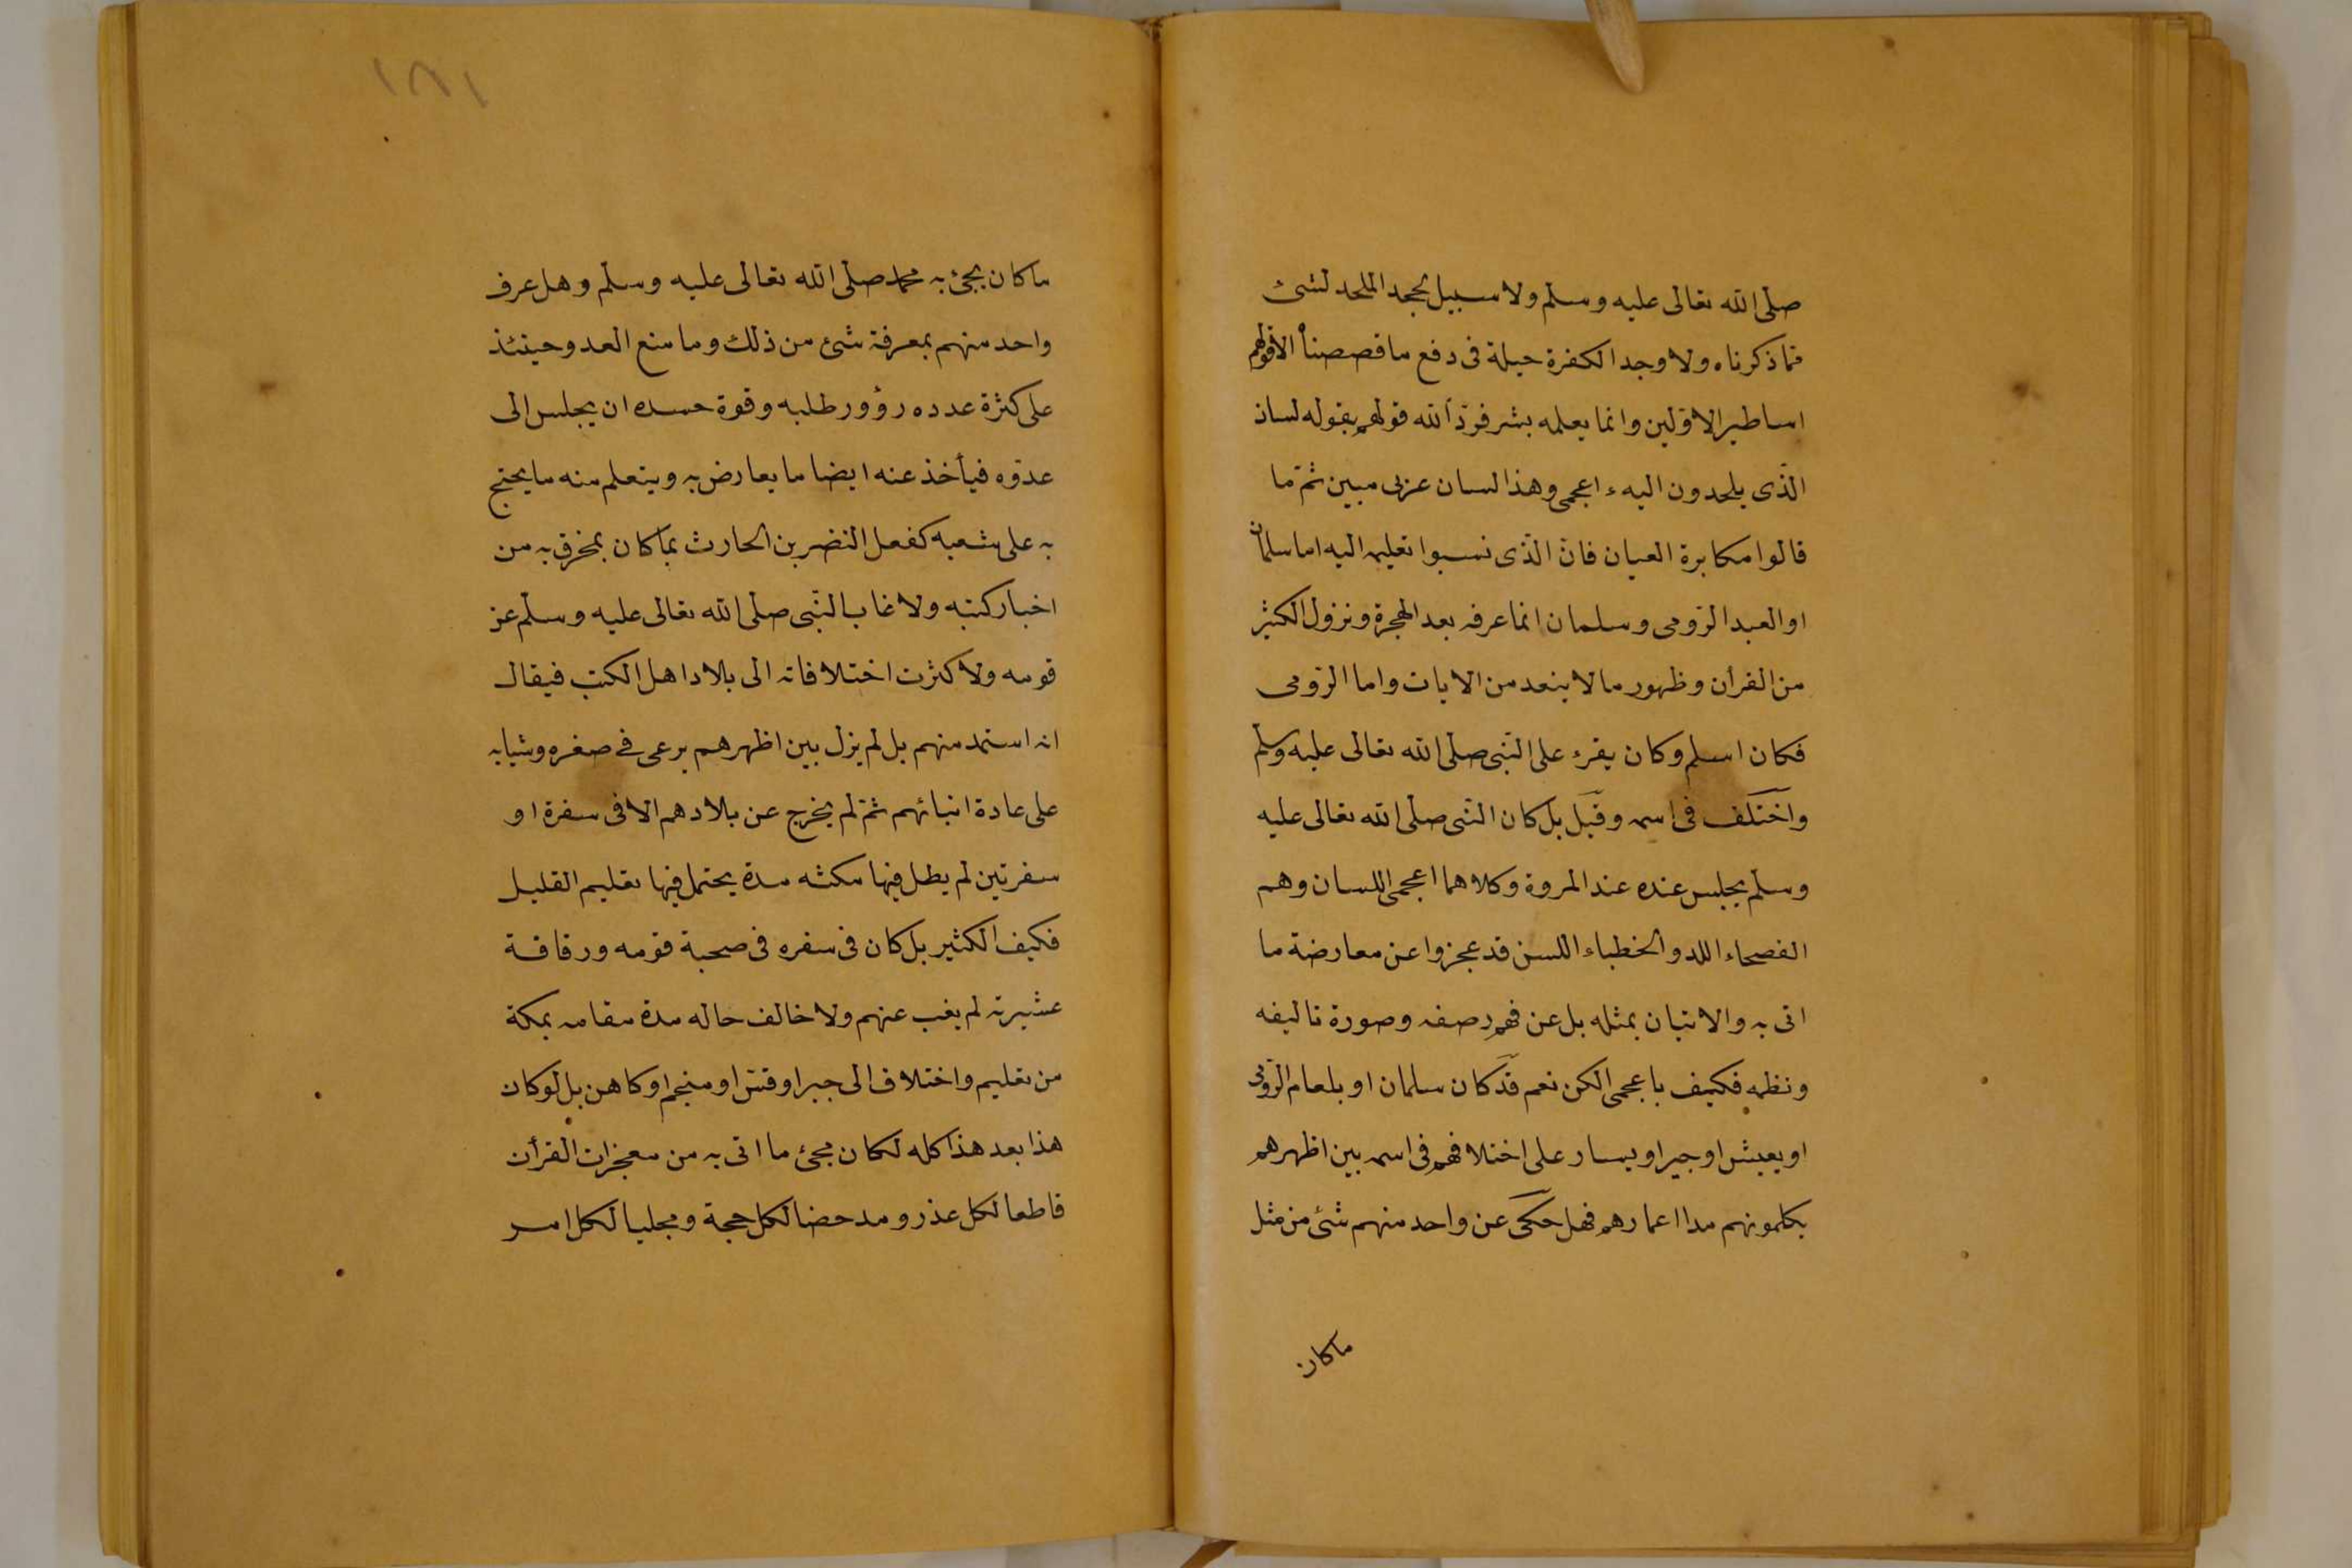 صلى الله تعالى عليه وسلم ولا سبيل لجحد الملحد لشئ
مما ذكرناه ولا وجد الكفرة حيلة فى دفع ما قصصنا الا قولهم
اساطير الاولين وانما يعلمه بشر فرد الله قولهم بقوله لسان
الذى يلحدون اليه اعجمى وهذا لسان عربى مبين ثم ما
قالوا مكابرة العيان فان الذى نسبوا تعليمه اليه اما سلمان
او العبد الرومى وسلمان انما عرفه بعد الهجرة ونزول الكثير
من القرأن وظهور ما لا ينعد من الايات واما الرومى
فكان اسلم وكان يقرء على النبى صلى الله تعالى عليه وسلم
واختلف فى اسمه وقيل بل كان النبى صلى الله تعالى عليه
وسلم يجلس عنده عند المروة وكلاهما اعجمى اللسان وهم
الفصحاء اللد والخطباء اللسن قد عجزوا عن معارضة ما
اتى به والاتيان بمثله بل عن فهم رصفه وصورة تاليفه
ونظمه فكيف باعجمى الكن نعم قد كان سلمان او بلعام الرومى
او يعيش او جبر او يسار على اختلافهم فى اسمه بين اظهرهم
يكلمونهم مدا اعمارهم فهل حكى عن واحد منهم شئ من مثل
ما كان
١٨١
ما كان يجئ به محمد صلى الله تعالى عليه وسلم وهل عرف
واحد منهم بمعرفة شئ من ذلك وما منع العدو حينئذ
على كثرة عدده ورؤور طلبه وقوة حسده ان يجلس الى
عدوه فيأخذ عنه ايضا ما يعارض به ويتعلم منه ما يحتج
به على شعبه كفعل النضر بن الحارث بما كان يمخرق به من
اخبار كتبه ولا غاب النبى صلى الله تعالى عليه وسلم عن
قومه ولا كثرت اختلافاته الى بلاد اهل الكتب فيقال
انه استمد منهم بل لم يزل بين اظهرهم يرعى فى صغره وشبابه
على عادة انبيائهم ثم لم يخرج عن بلادهم الا فى سفرة او
سفرتين لم يطل فيها مكثه مدة يحتمل فيها تعليم القليل
فكيف الكثير بل كان فى سفره فى صحبة قومه ورفاقة
عشيرته لم يغب عنهم ولا خالف حاله مدة مقامه بمكة
من تعليم واختلاف الى حبر او قس او منجم او كاهن بل لو كان
هذا بعد هذا كله لكان مجئ ما اتى به من معجزات القرأن
قاطعا لكل عذر ومدحضا لكل حجة ومجليا لكل امر